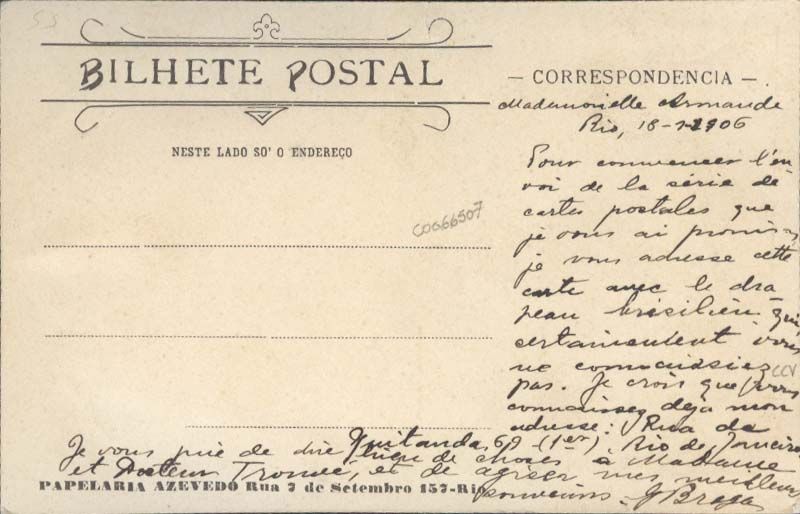 53
BILHETE POSTAL
NESTE LADO SO' O ENDEREÇO
C0G66507
— CORRESPONDENCIA —
Mademoiselle Armande
Rio, 18-1-1906
Pour commencer l'en
voi de la série de
cartes postales que
je vous ai promis,
je vous adresse cette
carte avec le dra
peau brésilien qui
certainement vous
ne connaissiez
pas. Je crois que vous
connaissez dejà mon
adresse: Rua da
Quitanda, 60 (1er). Rio de Janeiro
Je vous prie de dire bien de choses à Madame
et Docteur et de agréer mes meilleurs
souvenirs. Braga
CCV
PAPELARIA AZEVEDO Rua 7 de Setembro 157-Rio